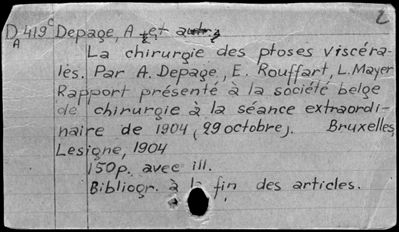 2
D 419c Depage, A et autr
A La chirurgie des ptoses viscéra-
les. Par A. Depage, E. Rouffart, L. Mayer
Rapport présenté à la société belge
de chirurgie à la séance extraordi-
naire de 1904 (29 octobre). Bruxelles,
Lesigne, 1904
150p. avec ill.
Bibliogr. à la fin des articles.